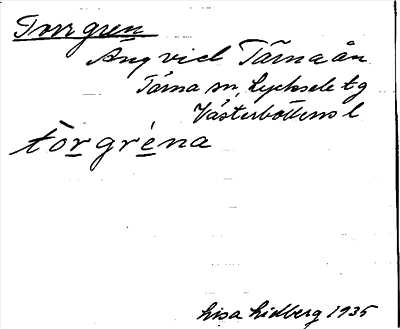 Torrgren
Äng vid Tärnaån
Tärna sn, Lycksele tg
Västerbottens l
tòrgréna
Lisa Lidberg 1935